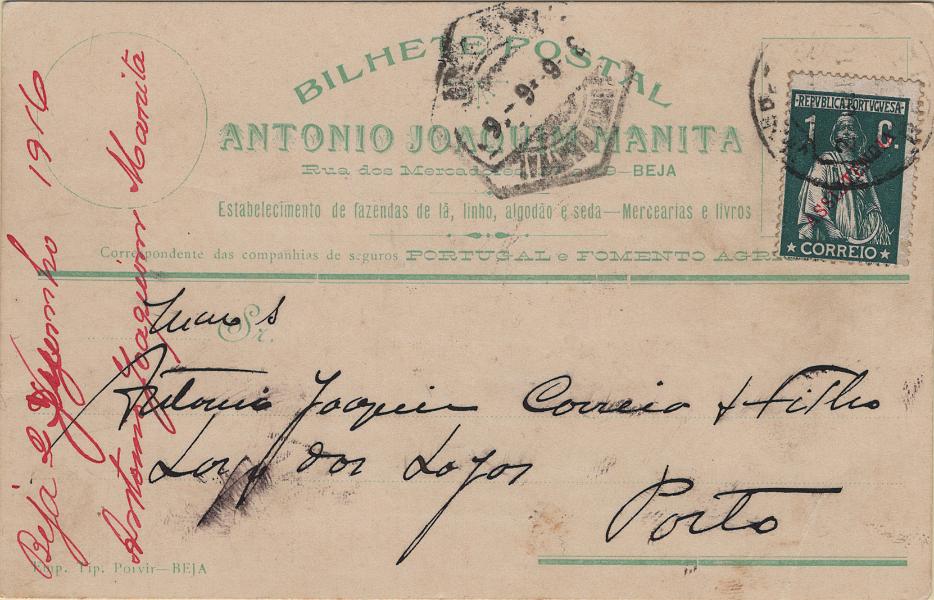 BILHETE POSTAL
ANTONIO JOAQUIM MANITA
Rua dos Mercadores —BEJA
Estabelecimento de fazendas de lã, linho, algodão e seda—Mercearias e livros
Correspondente das companhias de seguros PORTUGAL e FOMENTO AGR
REPVBLICA PORTVGVESA
1 C.
CORREIO
9-6-
Sr.
Antonio Joaquim Correia & Filho
Largo dos Loyos
Porto
Imp. Tip. Porvir—BEJA
Beja Junho 1916
Antonio Joaquim Manita